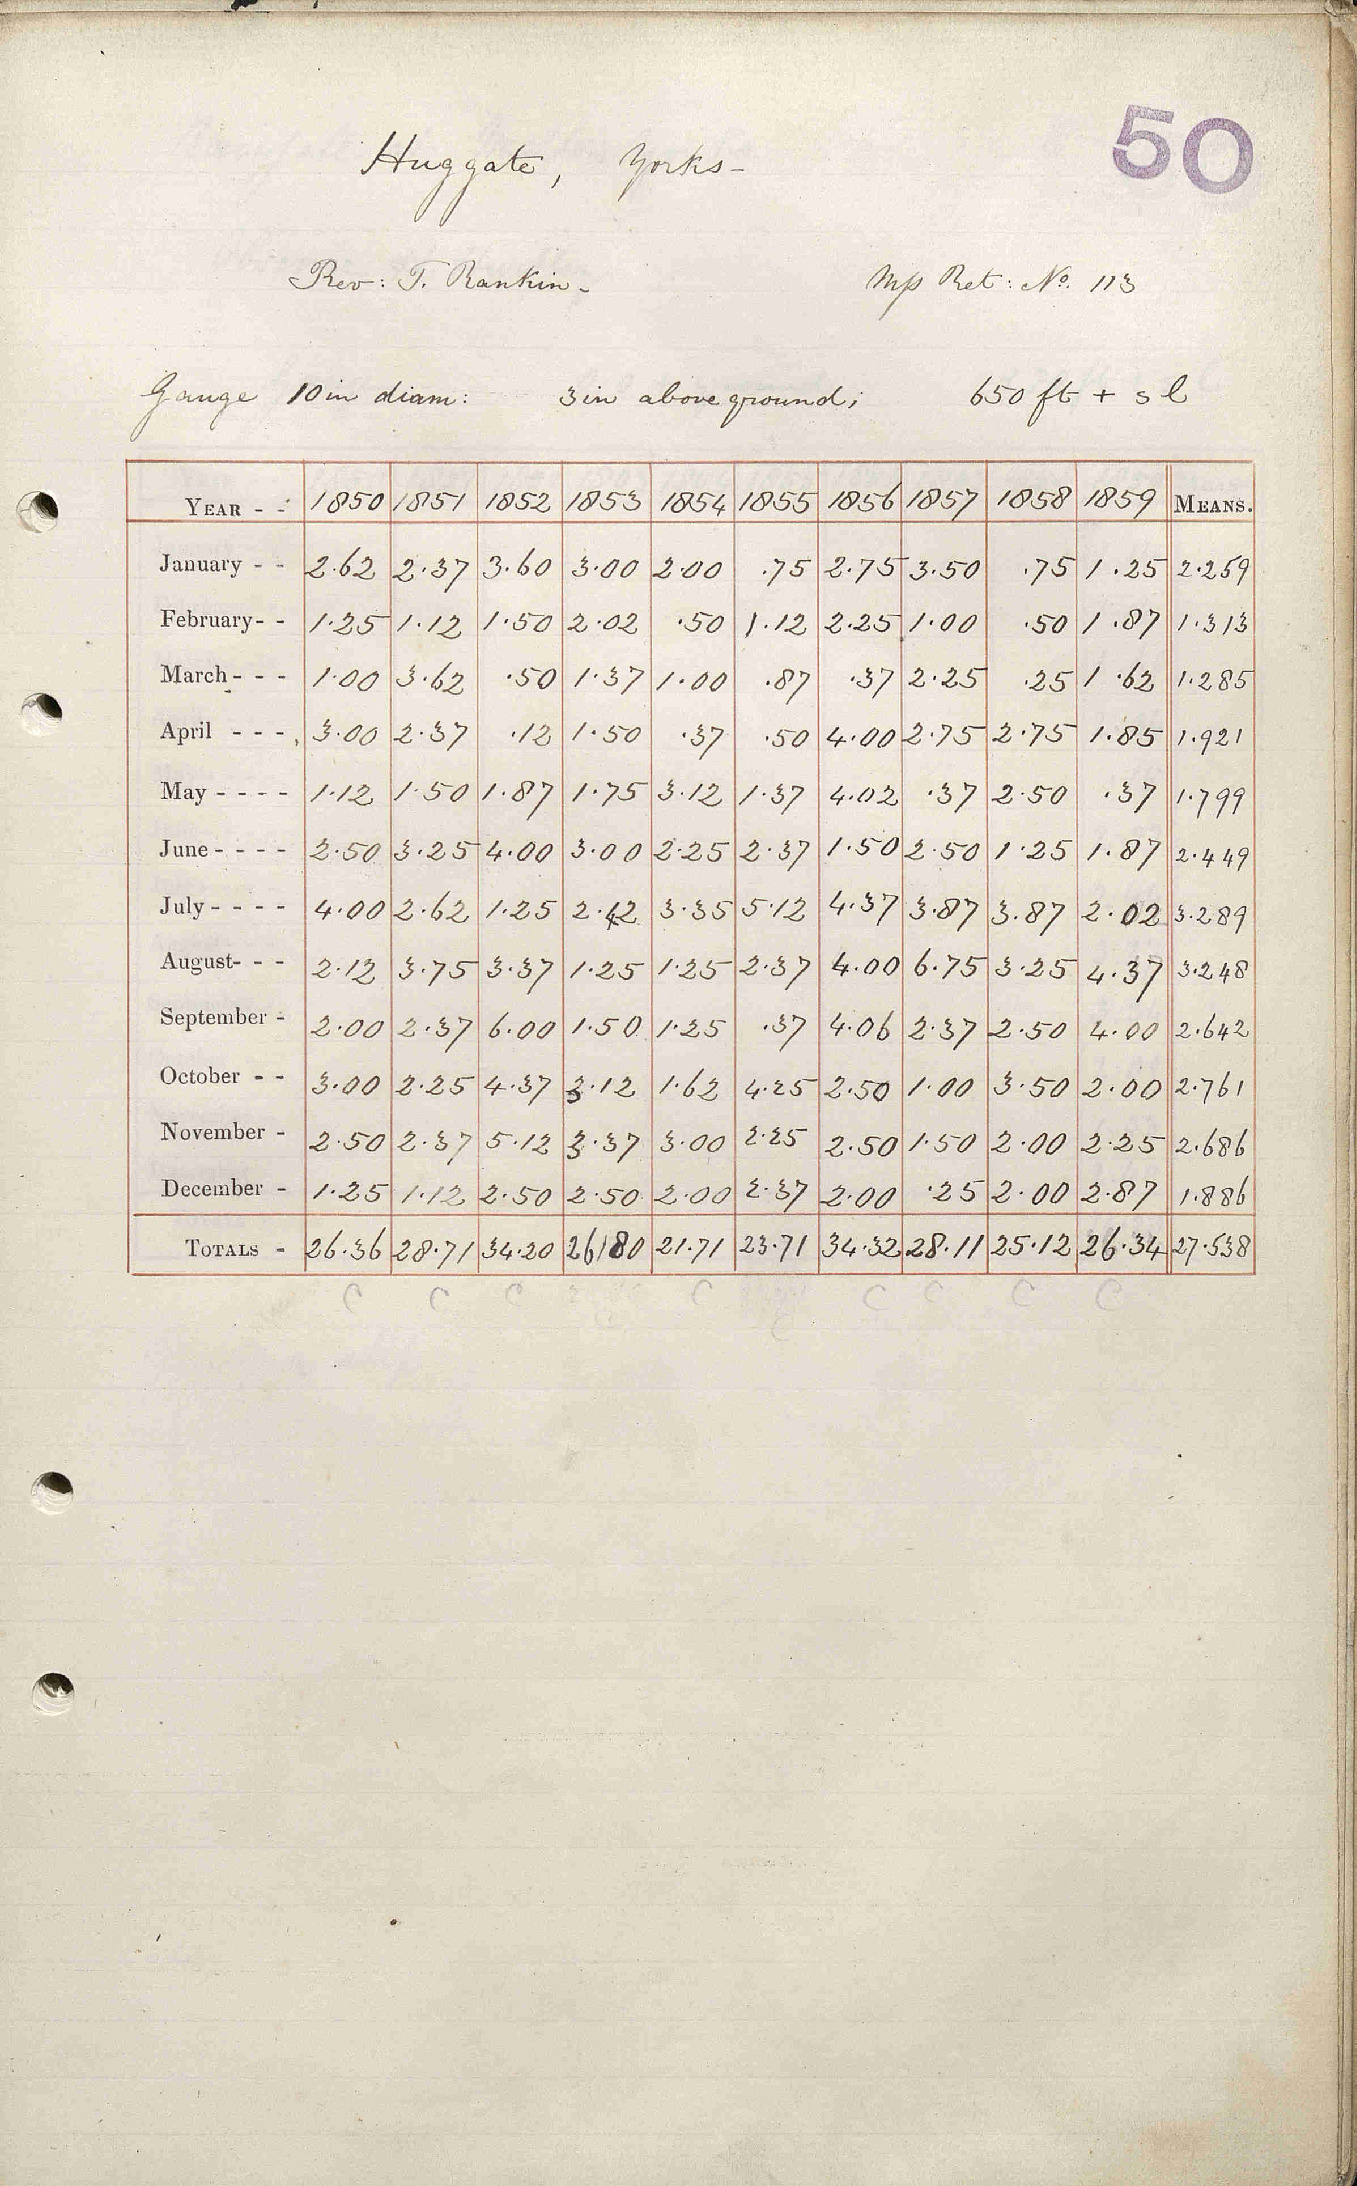 50
Huggate, Yorks -
Rev: T. Rankin - Mp Ret: No. 113
Gauge 10 in diam: 3 in above ground; 650 ft + s l
YEAR - - 1850 1851 1852 1853 1854 1855 1856 1857 1858 1859 MEANS.
January - - 2.62 2.37 3.60 3.00 2.00 .75 2.75 3.50 .75 1.25 2.259
February - - 1.25 1.12 1.50 2.02 .50 1.12 2.25 1.00 .50 1.87 1.313
March - - - 1.00 3.62 .50 1.37 1.00 .87 .37 2.25 .25 1.62 1.285
April - - - 3.00 2.37 .12 1.50 .37 .50 4.00 2.75 2.75 1.85 1.921
May - - - - 1.12 1.50 1.87 1.75 3.12 1.37 4.02 .37 2.50 .37 1.799
June - - - - 2.50 3.25 4.00 3.00 2.25 2.37 1.50 2.50 1.25 1.87 2.449
July - - - - 4.00 2.62 1.25 2.42 3.35 5.12 4.37 3.87 3.87 2.02 3.289
August - - - 2.12 3.75 3.37 1.25 1.25 2.37 4.00 6.75 3.25 4.37 3.248
September - 2.00 2.37 6.00 1.50 1.25 .37 4.06 2.37 2.50 4.00 2.642
October - - 3.00 2.25 4.37 3.12 1.62 4.25 2.50 1.00 3.50 2.00 2.761
November - 2.50 2.37 5.12 3.37 3.00 2.25 2.50 1.50 2.00 2.25 2.686
December - 1.25 1.12 2.50 2.50 2.00 2.37 2.00 .25 2.00 2.87 1.886
TOTALS - 26.36 28.71 34.20 26.80 21.71 23.71 34.32 28.11 25.12 26.34 27.538
C C C C C C C C